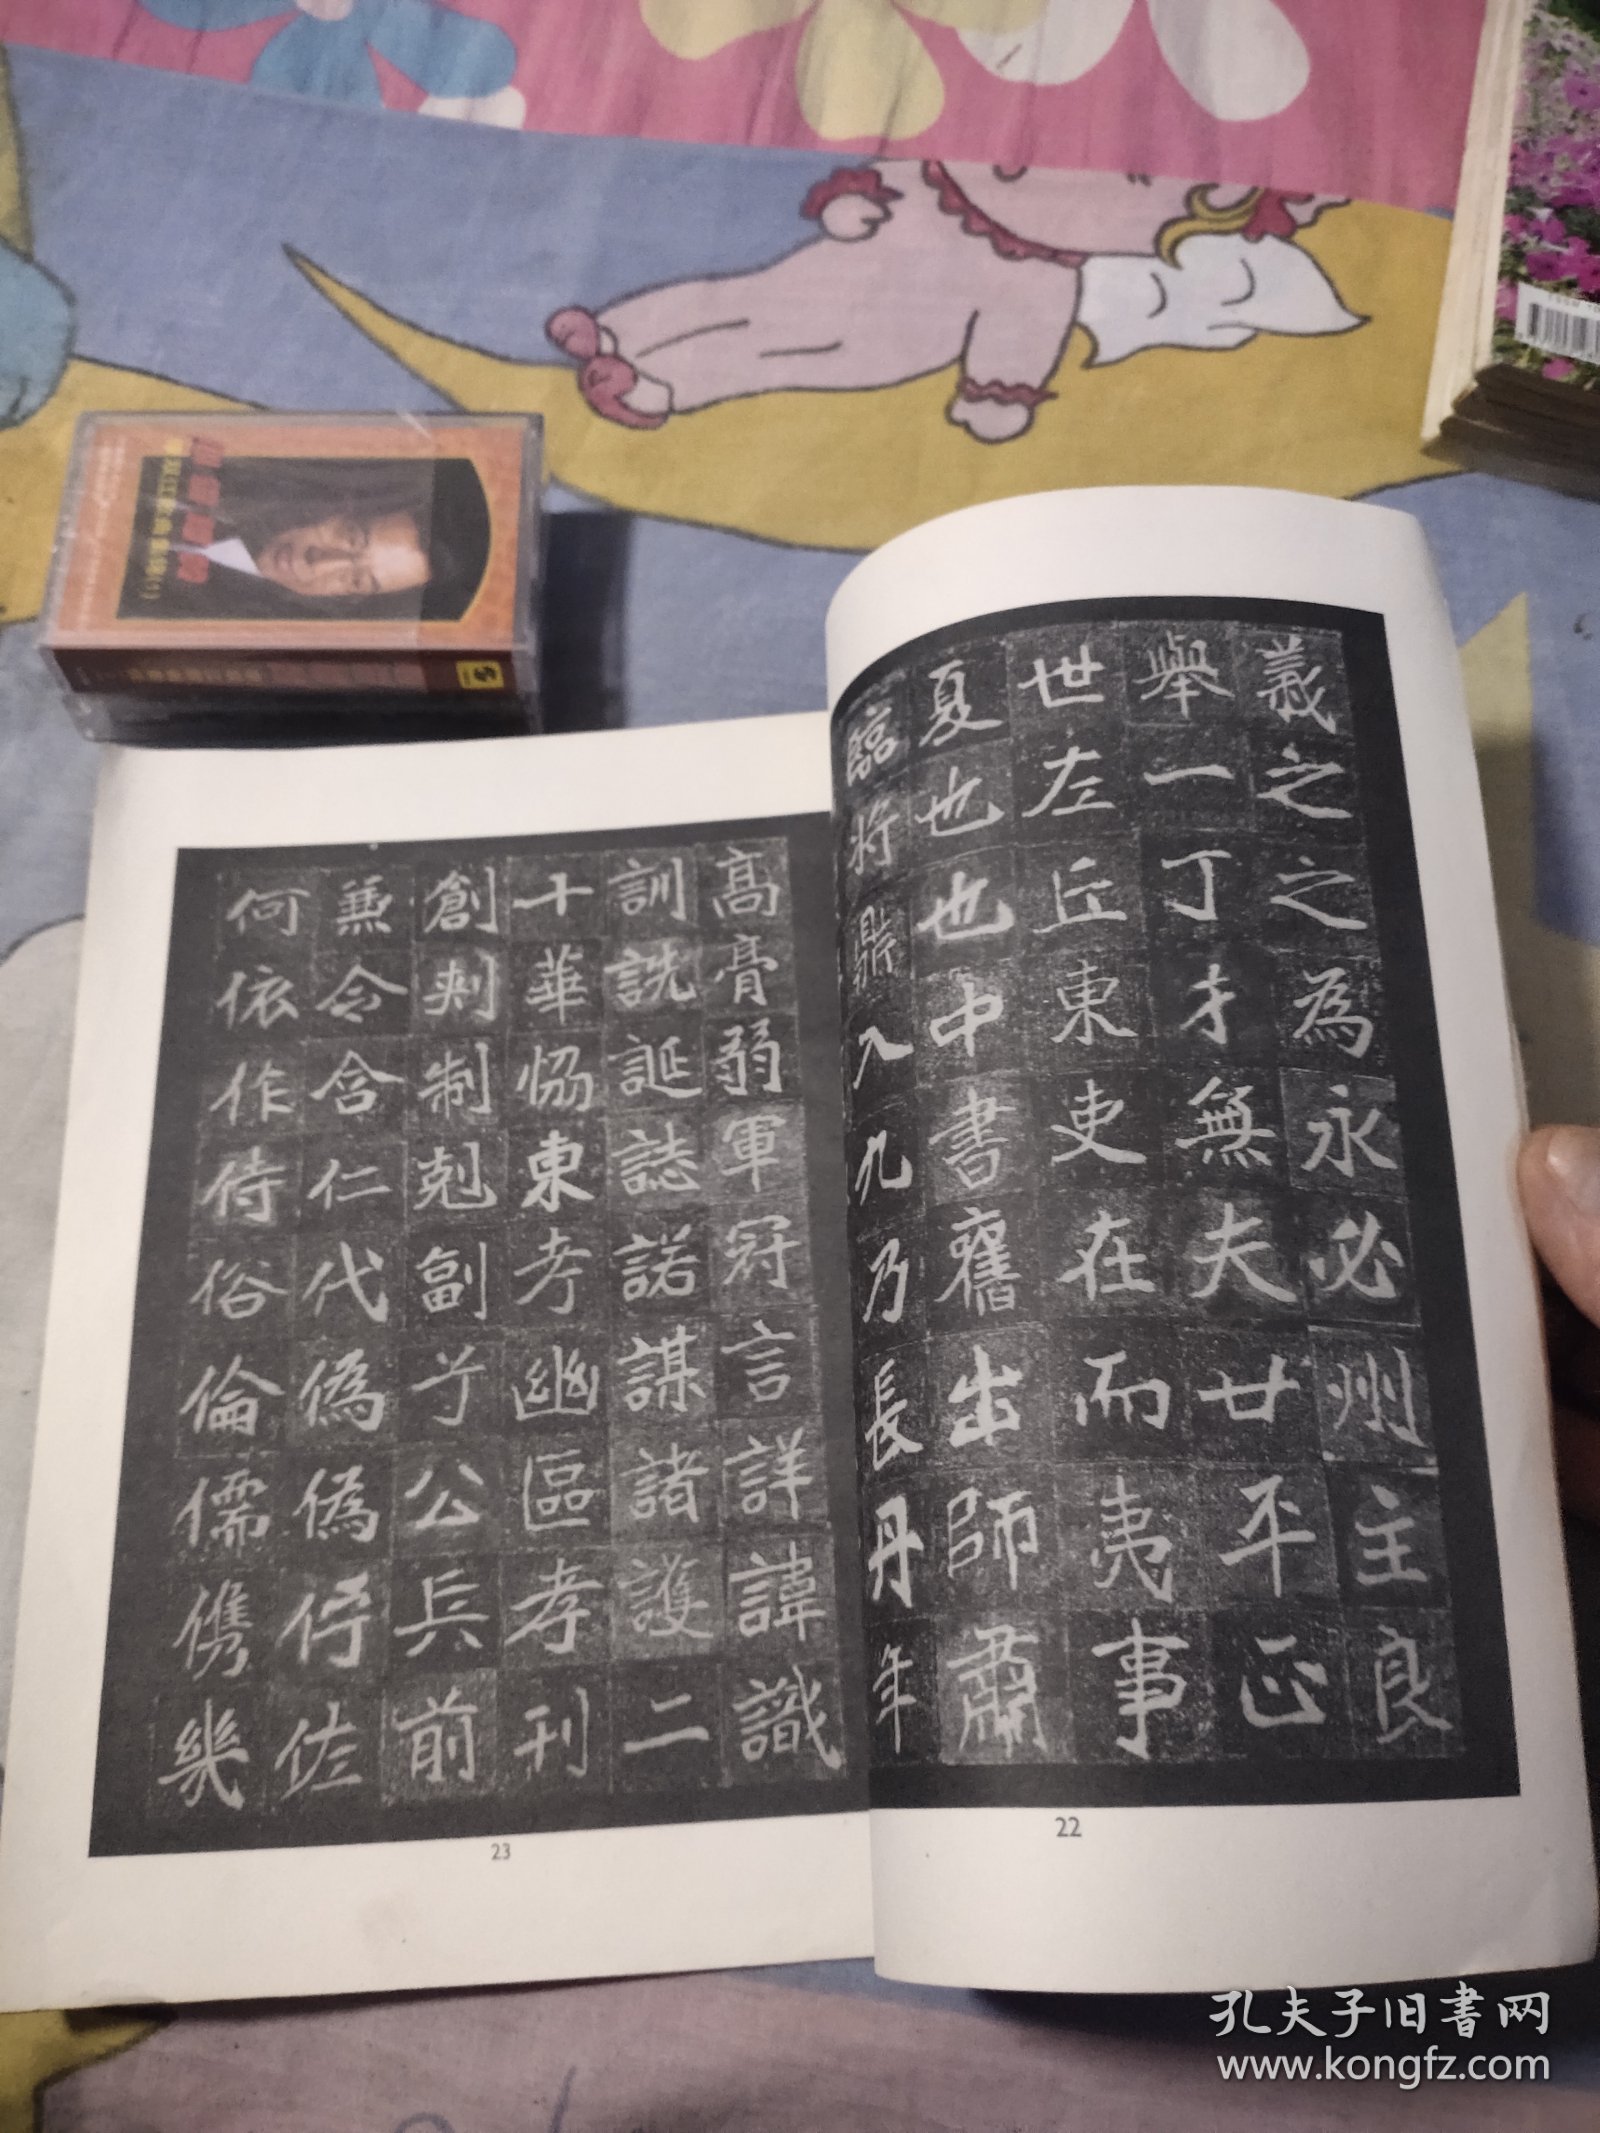 義之之為永必州主良
舉一丁才無夫廿平正
世左丘東吏在而夷事
夏也也中書舊出師肅
臨將鼎入九乃長丹年
22
高膏弱軍冠言詳諱識
訓詵誕誌諾謀諸護二
十華恊東考幽區孝刊
創刾制剋副兮公兵前
無令含仁代偽偽侍佐
何依作待俗倫儒儁幾
23
孔夫子旧書网
www.kongfz.com